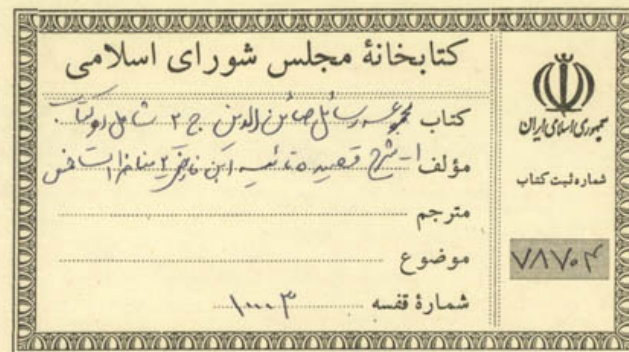 کتابخانهٔ مجلس شورای اسلامی
کتاب مجموعه رسائل صائن الدین ج ۲ شامل دو کتاب
مؤلف ۱- شرح قصیده تائیه ابن فارض ۲
مترجم
موضوع
شمارهٔ قفسه ۱۰۰۰۳
جمهوری اسلامی ایران
شماره ثبت کتاب
۷۸۷۰۴